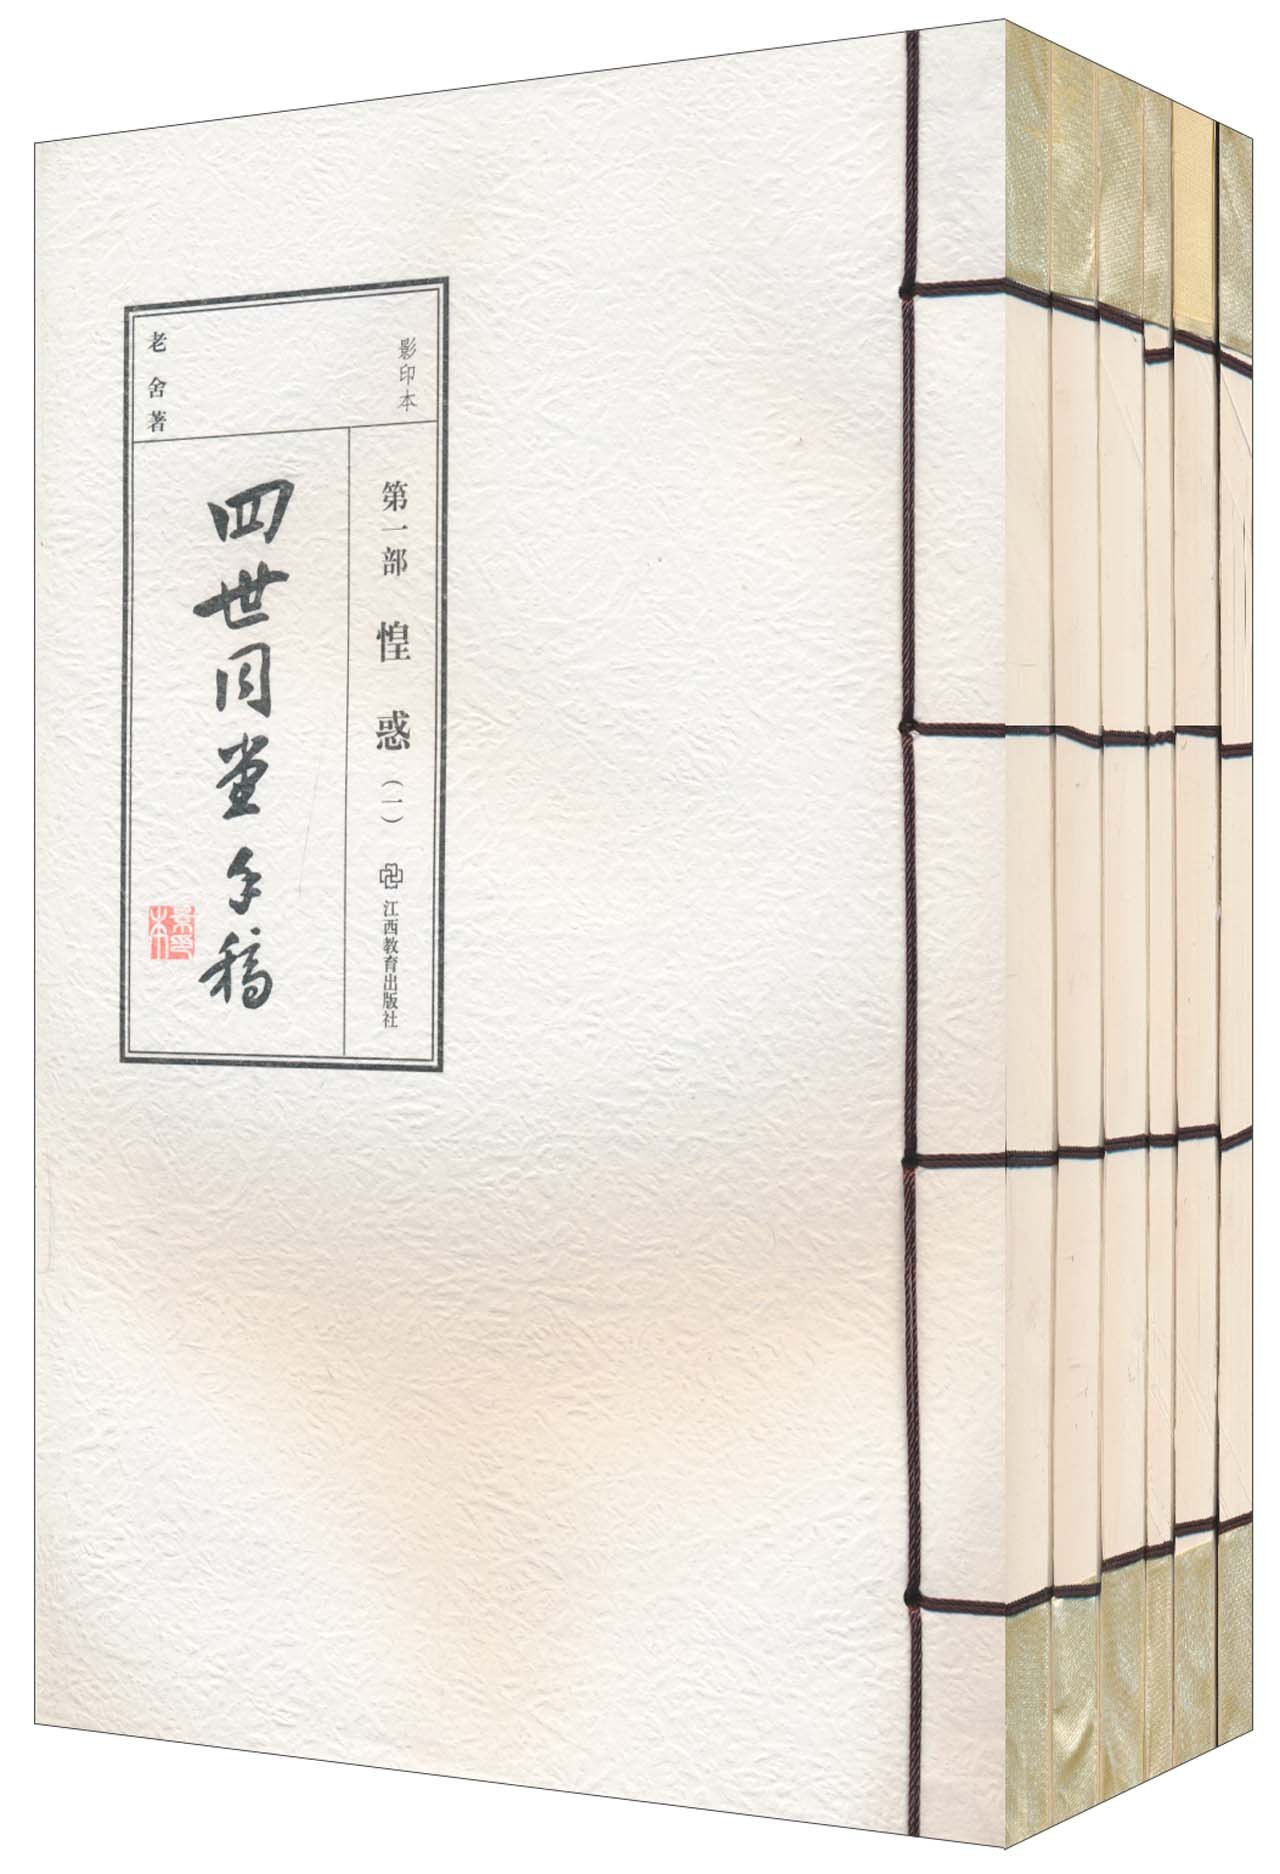 影印本
第一部 惶惑（一） 江西教育出版社
老舍著
四世同堂手稿
景印本